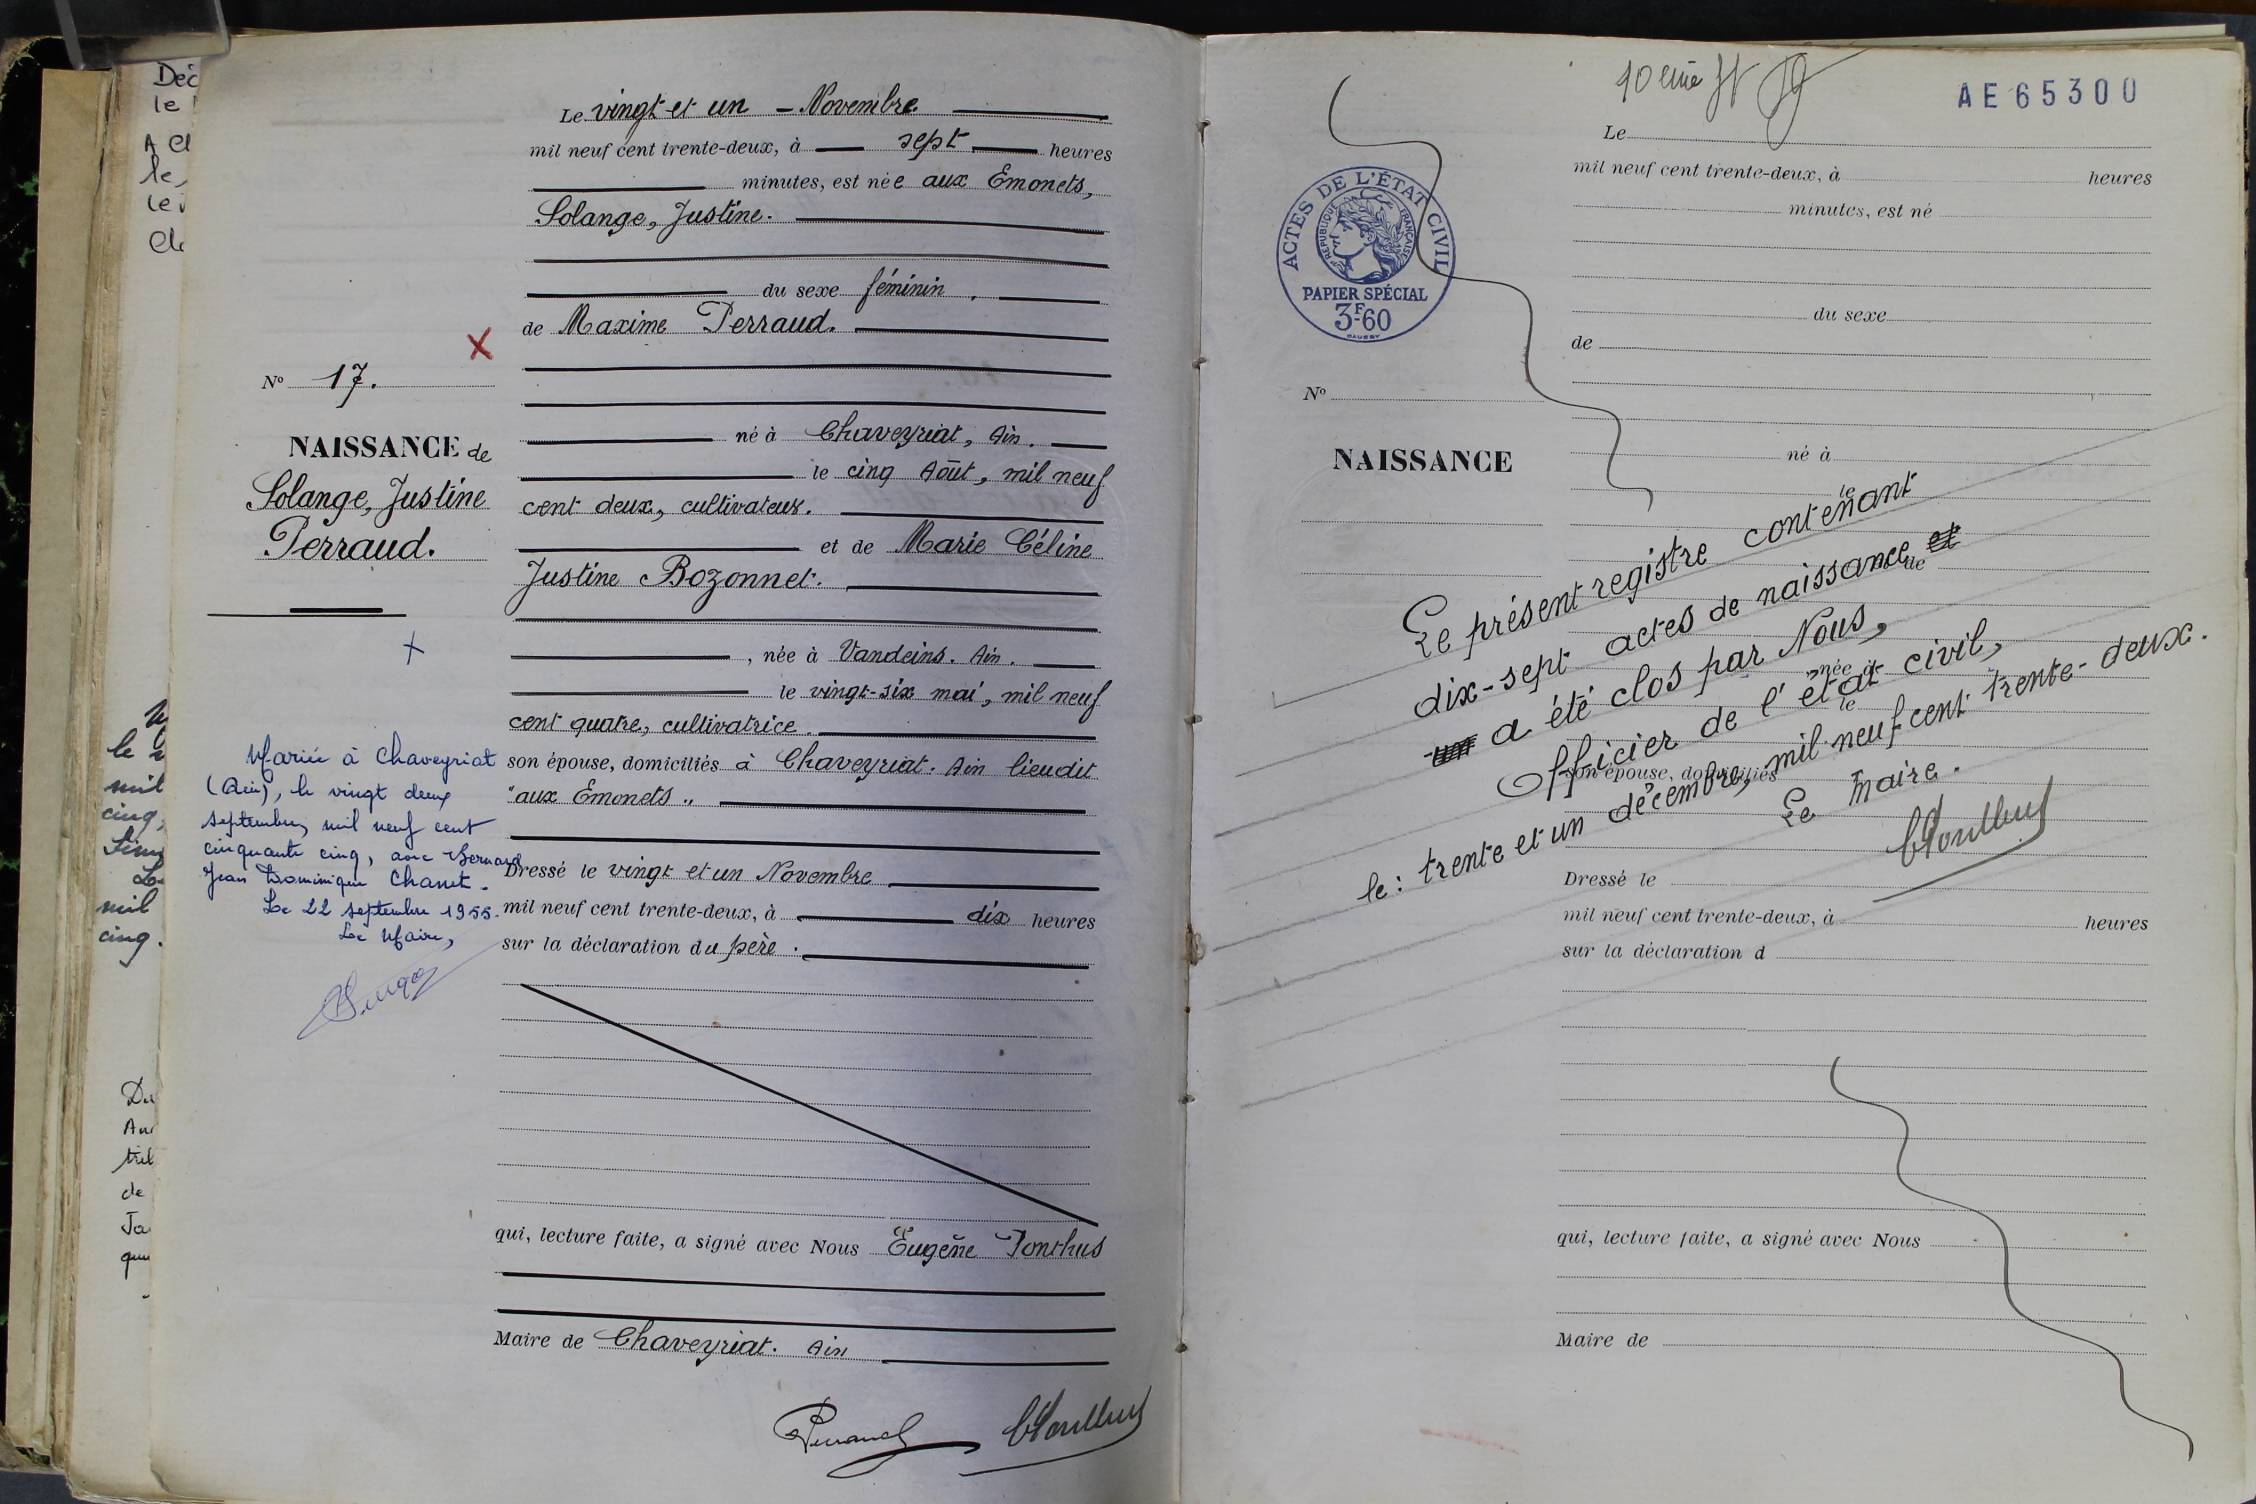 Déc
le
A
le,
le
Le vingt et un - Novembre
mil neuf cent trente-deux, à sept heures
minutes, est née aux Emonets,
Solange, Justine.
du sexe féminin.
de Maxime Perraud.
né à Chaveyriat, Ain.
le cinq Août, mil neuf
cent deux, cultivateur.
et de Marie Céline
Justine Bozonnet.
, née à Vandeins. Ain.
le vingt-six mai, mil neuf
cent quatre, cultivatrice.
son épouse, domiciliés à Chaveyriat. Ain lieudit
"aux Emonets"
Dressé le vingt et un Novembre
mil neuf cent trente-deux, à dix heures
sur la déclaration du père.
qui, lecture faite, a signé avec Nous Eugène Jonthus
Maire de Chaveyriat. Ain
Perraud
No 17.
NAISSANCE de
Solange, Justine
Perraud.
Mariée à Chaveyriat
(Ain), le vingt deux
septembre, mil neuf cent
cinquante cinq, avec Bernard
Jean Dominique Chanet.
Le 22 septembre 1955.
Le Maire,
le
mil
cinq,
mil
cinq.
de
AE65300
ACTES DE L'ÉTAT CIVIL
RÉPUBLIQUE FRANÇAISE
PAPIER SPÉCIAL
3F60
No
NAISSANCE
Le
mil neuf cent trente-deux, à heures
minutes, est né
du sexe
de
né à
le
et de
née à
le
son épouse, domiciliés
Dressé le
mil neuf cent trente-deux, à heures
sur la déclaration d
qui, lecture faite, a signé avec Nous
Maire de
Le présent registre contenant
dix-sept actes de naissance
a été clos par Nous,
Officier de l'état civil,
le: trente et un décembre, mil neuf cent trente-deux.
Le Maire.